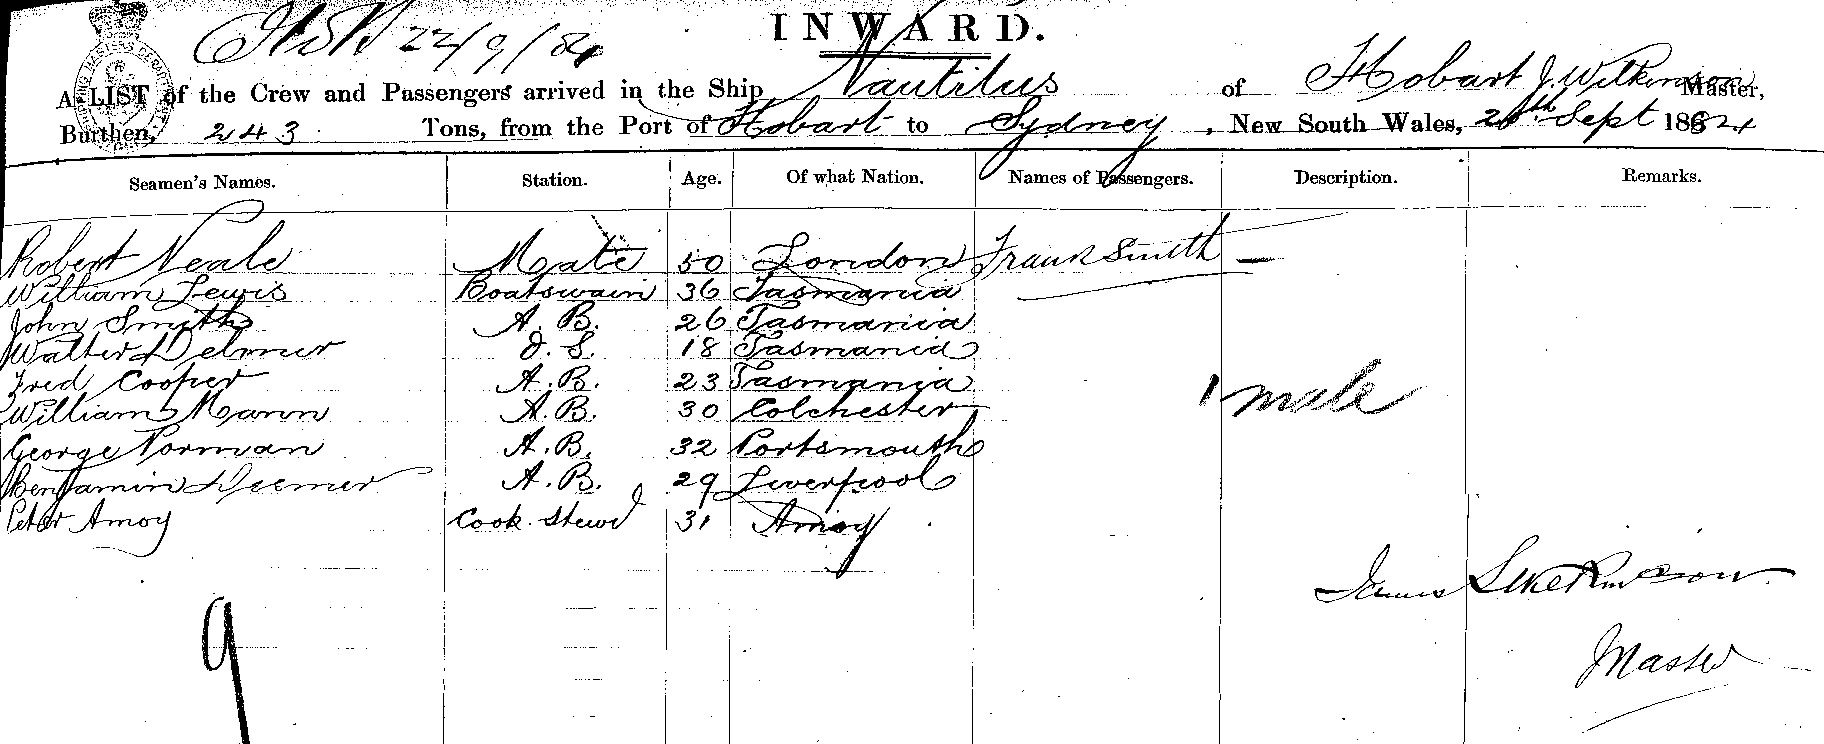 22/9/84
INWARD.
A LIST of the Crew and Passengers arrived in the Ship Nautilus of Hobart J. Wilkinson Master,
Burthen, 243 Tons, from the Port of Hobart to Sydney, New South Wales, 20th Sept 1884
Seamen's Names. Station. Age. Of what Nation. Names of Passengers. Description. Remarks.
Robert Neale Mate 50 London Frank Smith —
William Lewis Boatswain 36 Tasmania
John Smith A. B. 26 Tasmania
Walter Delmer O. S. 18 Tasmania
Fred Cooper A. B. 23 Tasmania
1 male
William Mann A. B. 30 Colchester
George Norman A. B. 32 Portsmouth
Benjamin A. B. 29 Liverpool
Peter Amoy Cook Stewd 31 Amoy
James Wilkinson
Master
9